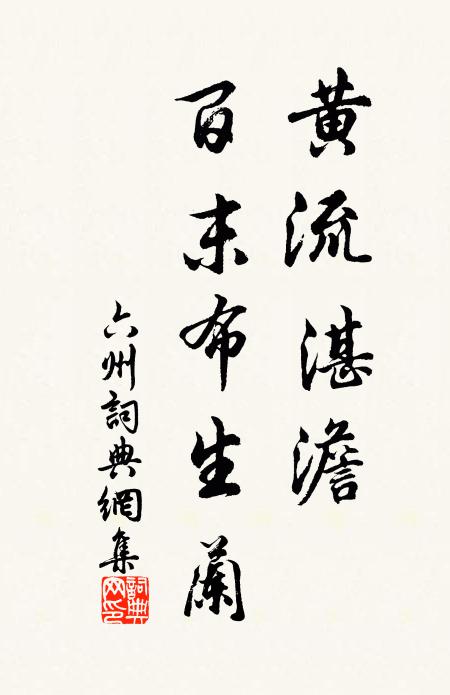 黄流湛澹
百末布生蘭
六州詞典網集
詞典
网印